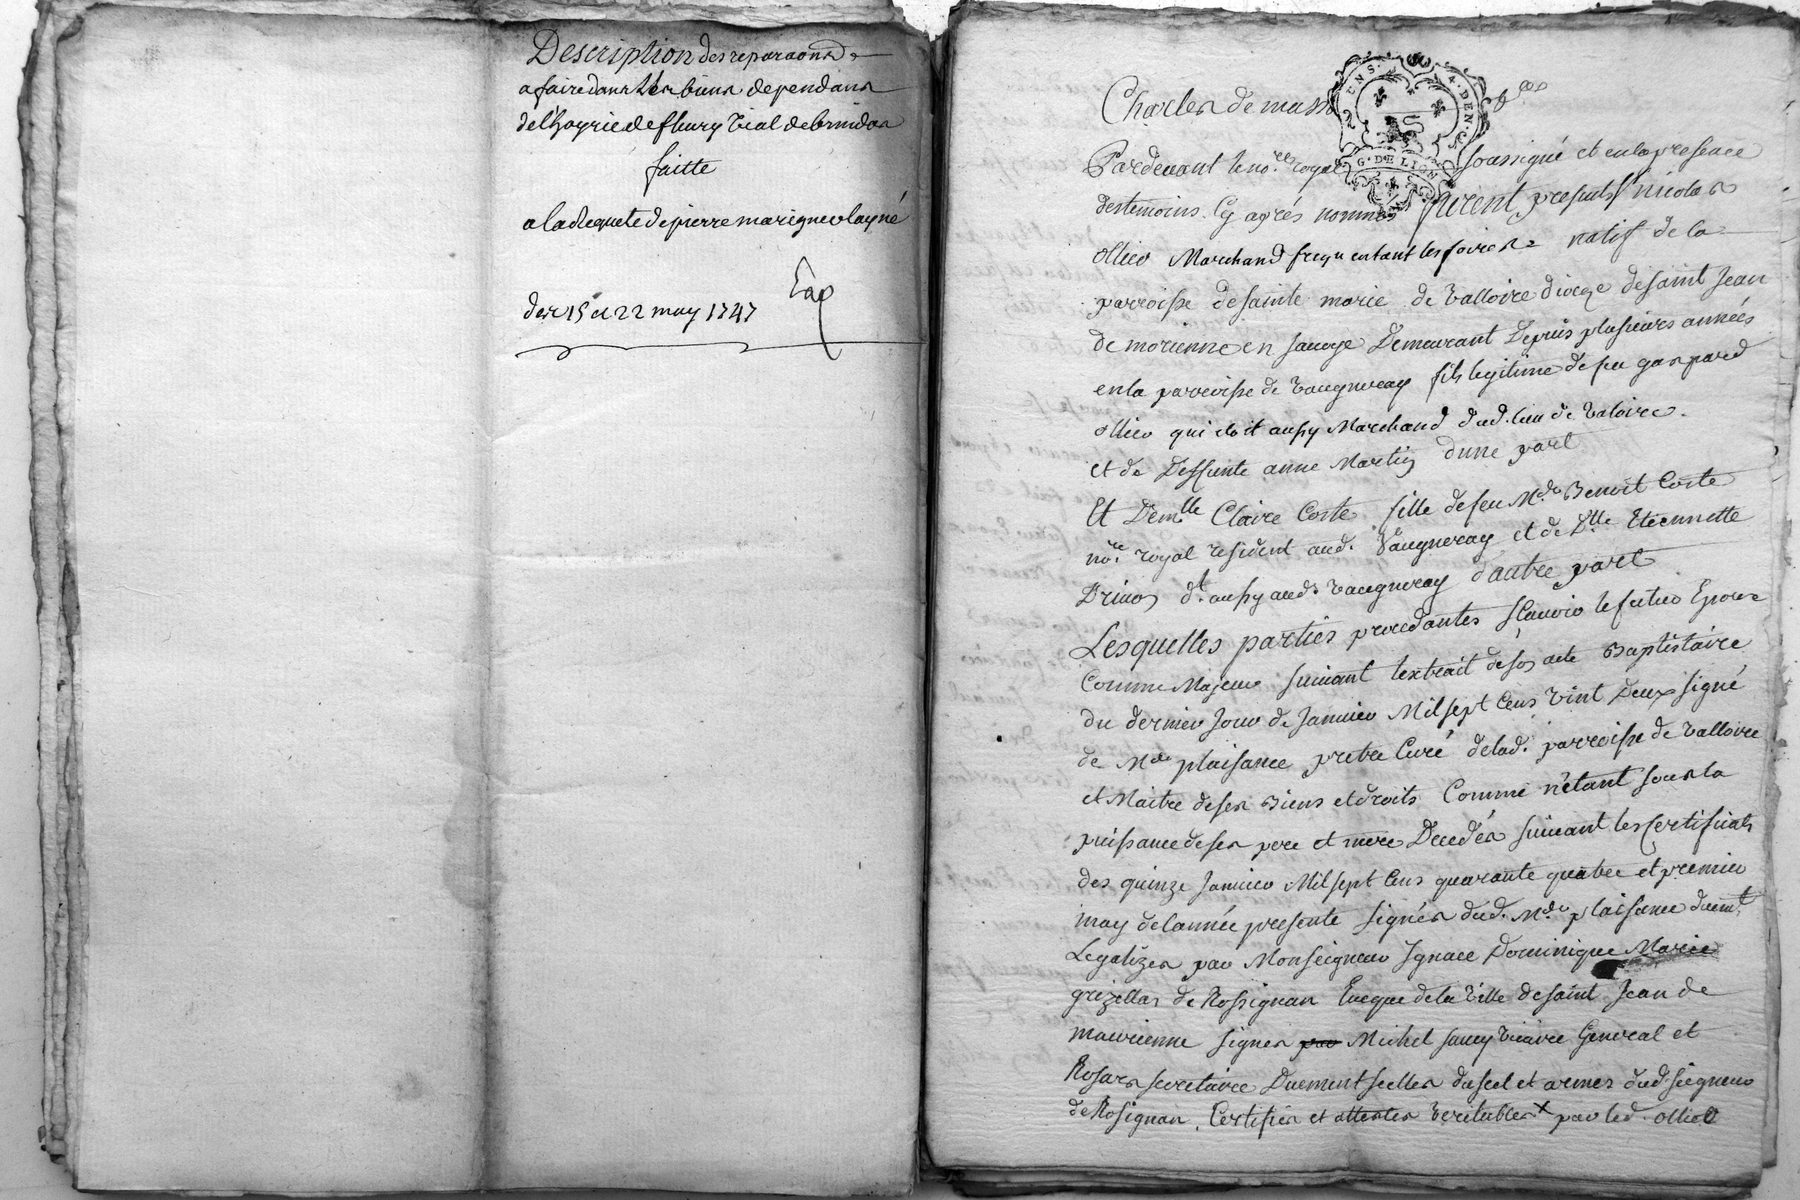 Description des reparaons
a faire dans les biens dependans
de l'hoyrie de fleury Vial de brindas
faitte
a la Requete de pierre marigneo layné
des 15 et 22 may 1747
Exp
2 UNS. 4. DEN. G. DE LION
Charles de mass
Pardevant le nore. royal soussigné et en la presence
des temoins Cy aprés nommés furent presents Sr. nicolas
ollier Marchand frequentant les foires natif de la
parroisse de sainte marie de Valloire diocze de saint Jean
de morienne en savoye Demeurant Depuis plusieurs années
en la parroisse de Vaugneray fils legitime de feu gaspard
ollier qui etoit aussy Marchand dud. lieu de Valoire
et de Deffunte anne Martin d'une part
Et Demlle Claire Coste fille de feu Me. Benoit Coste
nore. royal resident aud. Vaugneray et de Dlle Etiennette
Drivon dt. aussy aud. Vaugneray d'autre part
Lesquelles parties procedantes sçavoir le futur Epoux
Comme Majeur suivant lextrait de son acte Baptistaire
du dernier Jour de Janvier Mil sept Cens vint deux signé
de Mre plaisance pretre Curé de lad. parroisse de Valloire
et Maitre de ses Biens et droits Comme n'étant sous la
puissance de ses pere et mere Decedés suivant les certificats
des quinze Janvier Mil sept Cens quarante quatre et premier
may de lannée presente signés dud. Mre plaisance duemt
Legalizés par Monseigneur Ignace Dominique Marie
grizellas de Rossignan Eveque de la Ville de saint Jean de
maurienne signés par Michel savey vicaire General et
Rosaz secretaire Duement scellés du scel et armes dud. seigneur
de Rosignan. Certifiés et attestés veritables x par led. ollier